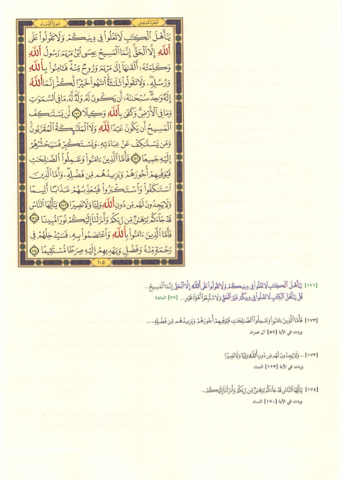 الجزء السادس
سورة النساء
يَٰٓأَهۡلَ ٱلۡكِتَٰبِ لَا تَغۡلُواْ فِي دِينِكُمۡ وَلَا تَقُولُواْ عَلَى
ٱللَّهِ إِلَّا ٱلۡحَقَّۚ إِنَّمَا ٱلۡمَسِيحُ عِيسَى ٱبۡنُ مَرۡيَمَ رَسُولُ ٱللَّهِ
وَكَلِمَتُهُۥٓ أَلۡقَىٰهَآ إِلَىٰ مَرۡيَمَ وَرُوحٞ مِّنۡهُۖ فَـَٔامِنُواْ بِٱللَّهِ
وَرُسُلِهِۦۖ وَلَا تَقُولُواْ ثَلَٰثَةٌۚ ٱنتَهُواْ خَيۡرٗا لَّكُمۡۚ إِنَّمَا ٱللَّهُ
إِلَٰهٞ وَٰحِدٞۖ سُبۡحَٰنَهُۥٓ أَن يَكُونَ لَهُۥ وَلَدٞۘ لَّهُۥ مَا فِي ٱلسَّمَٰوَٰتِ
وَمَا فِي ٱلۡأَرۡضِۗ وَكَفَىٰ بِٱللَّهِ وَكِيلٗا ١٧١ لَّن يَسۡتَنكِفَ
ٱلۡمَسِيحُ أَن يَكُونَ عَبۡدٗا لِّلَّهِ وَلَا ٱلۡمَلَٰٓئِكَةُ ٱلۡمُقَرَّبُونَۚ
وَمَن يَسۡتَنكِفۡ عَنۡ عِبَادَتِهِۦ وَيَسۡتَكۡبِرۡ فَسَيَحۡشُرُهُمۡ
إِلَيۡهِ جَمِيعٗا ١٧٢ فَأَمَّا ٱلَّذِينَ ءَامَنُواْ وَعَمِلُواْ ٱلصَّٰلِحَٰتِ
فَيُوَفِّيهِمۡ أُجُورَهُمۡ وَيَزِيدُهُم مِّن فَضۡلِهِۦۖ وَأَمَّا ٱلَّذِينَ
ٱسۡتَنكَفُواْ وَٱسۡتَكۡبَرُواْ فَيُعَذِّبُهُمۡ عَذَابًا أَلِيمٗا
وَلَا يَجِدُونَ لَهُم مِّن دُونِ ٱللَّهِ وَلِيّٗا وَلَا نَصِيرٗا ١٧٣ يَٰٓأَيُّهَا ٱلنَّاسُ
قَدۡ جَآءَكُم بُرۡهَٰنٞ مِّن رَّبِّكُمۡ وَأَنزَلۡنَآ إِلَيۡكُمۡ نُورٗا مُّبِينٗا ١٧٤
فَأَمَّا ٱلَّذِينَ ءَامَنُواْ بِٱللَّهِ وَٱعۡتَصَمُواْ بِهِۦ فَسَيُدۡخِلُهُمۡ فِي
رَحۡمَةٖ مِّنۡهُ وَفَضۡلٖ وَيَهۡدِيهِمۡ إِلَيۡهِ صِرَٰطٗا مُّسۡتَقِيمٗا ١٧٥
١٠٥
[١٧١] يَٰٓأَهۡلَ ٱلۡكِتَٰبِ لَا تَغۡلُواْ فِي دِينِكُمۡ وَلَا تَقُولُواْ عَلَى ٱللَّهِ إِلَّا ٱلۡحَقَّ إِنَّمَا ٱلۡمَسِيحُ...
قُلۡ يَٰٓأَهۡلَ ٱلۡكِتَٰبِ لَا تَغۡلُواْ فِي دِينِكُمۡ غَيۡرَ ٱلۡحَقِّ وَلَا تَتَّبِعُوٓاْ أَهۡوَآءَ قَوۡمٖ... [٧٧] المائدة
[١٧٣] فَأَمَّا ٱلَّذِينَ ءَامَنُواْ وَعَمِلُواْ ٱلصَّٰلِحَٰتِ فَيُوَفِّيهِمۡ أُجُورَهُمۡ وَيَزِيدُهُم مِّن فَضۡلِهِۦ...
وردت في الآية [٥٧] آل عمران
[١٧٣] ...وَلَا يَجِدُونَ لَهُم مِّن دُونِ ٱللَّهِ وَلِيّٗا وَلَا نَصِيرٗا
وردت في الآية [١٢٣] النساء
[١٧٤] يَٰٓأَيُّهَا ٱلنَّاسُ قَدۡ جَآءَكُم بُرۡهَٰنٞ مِّن رَّبِّكُمۡ وَأَنزَلۡنَآ إِلَيۡكُمۡ...
وردت في الآية [١٧٠] النساء